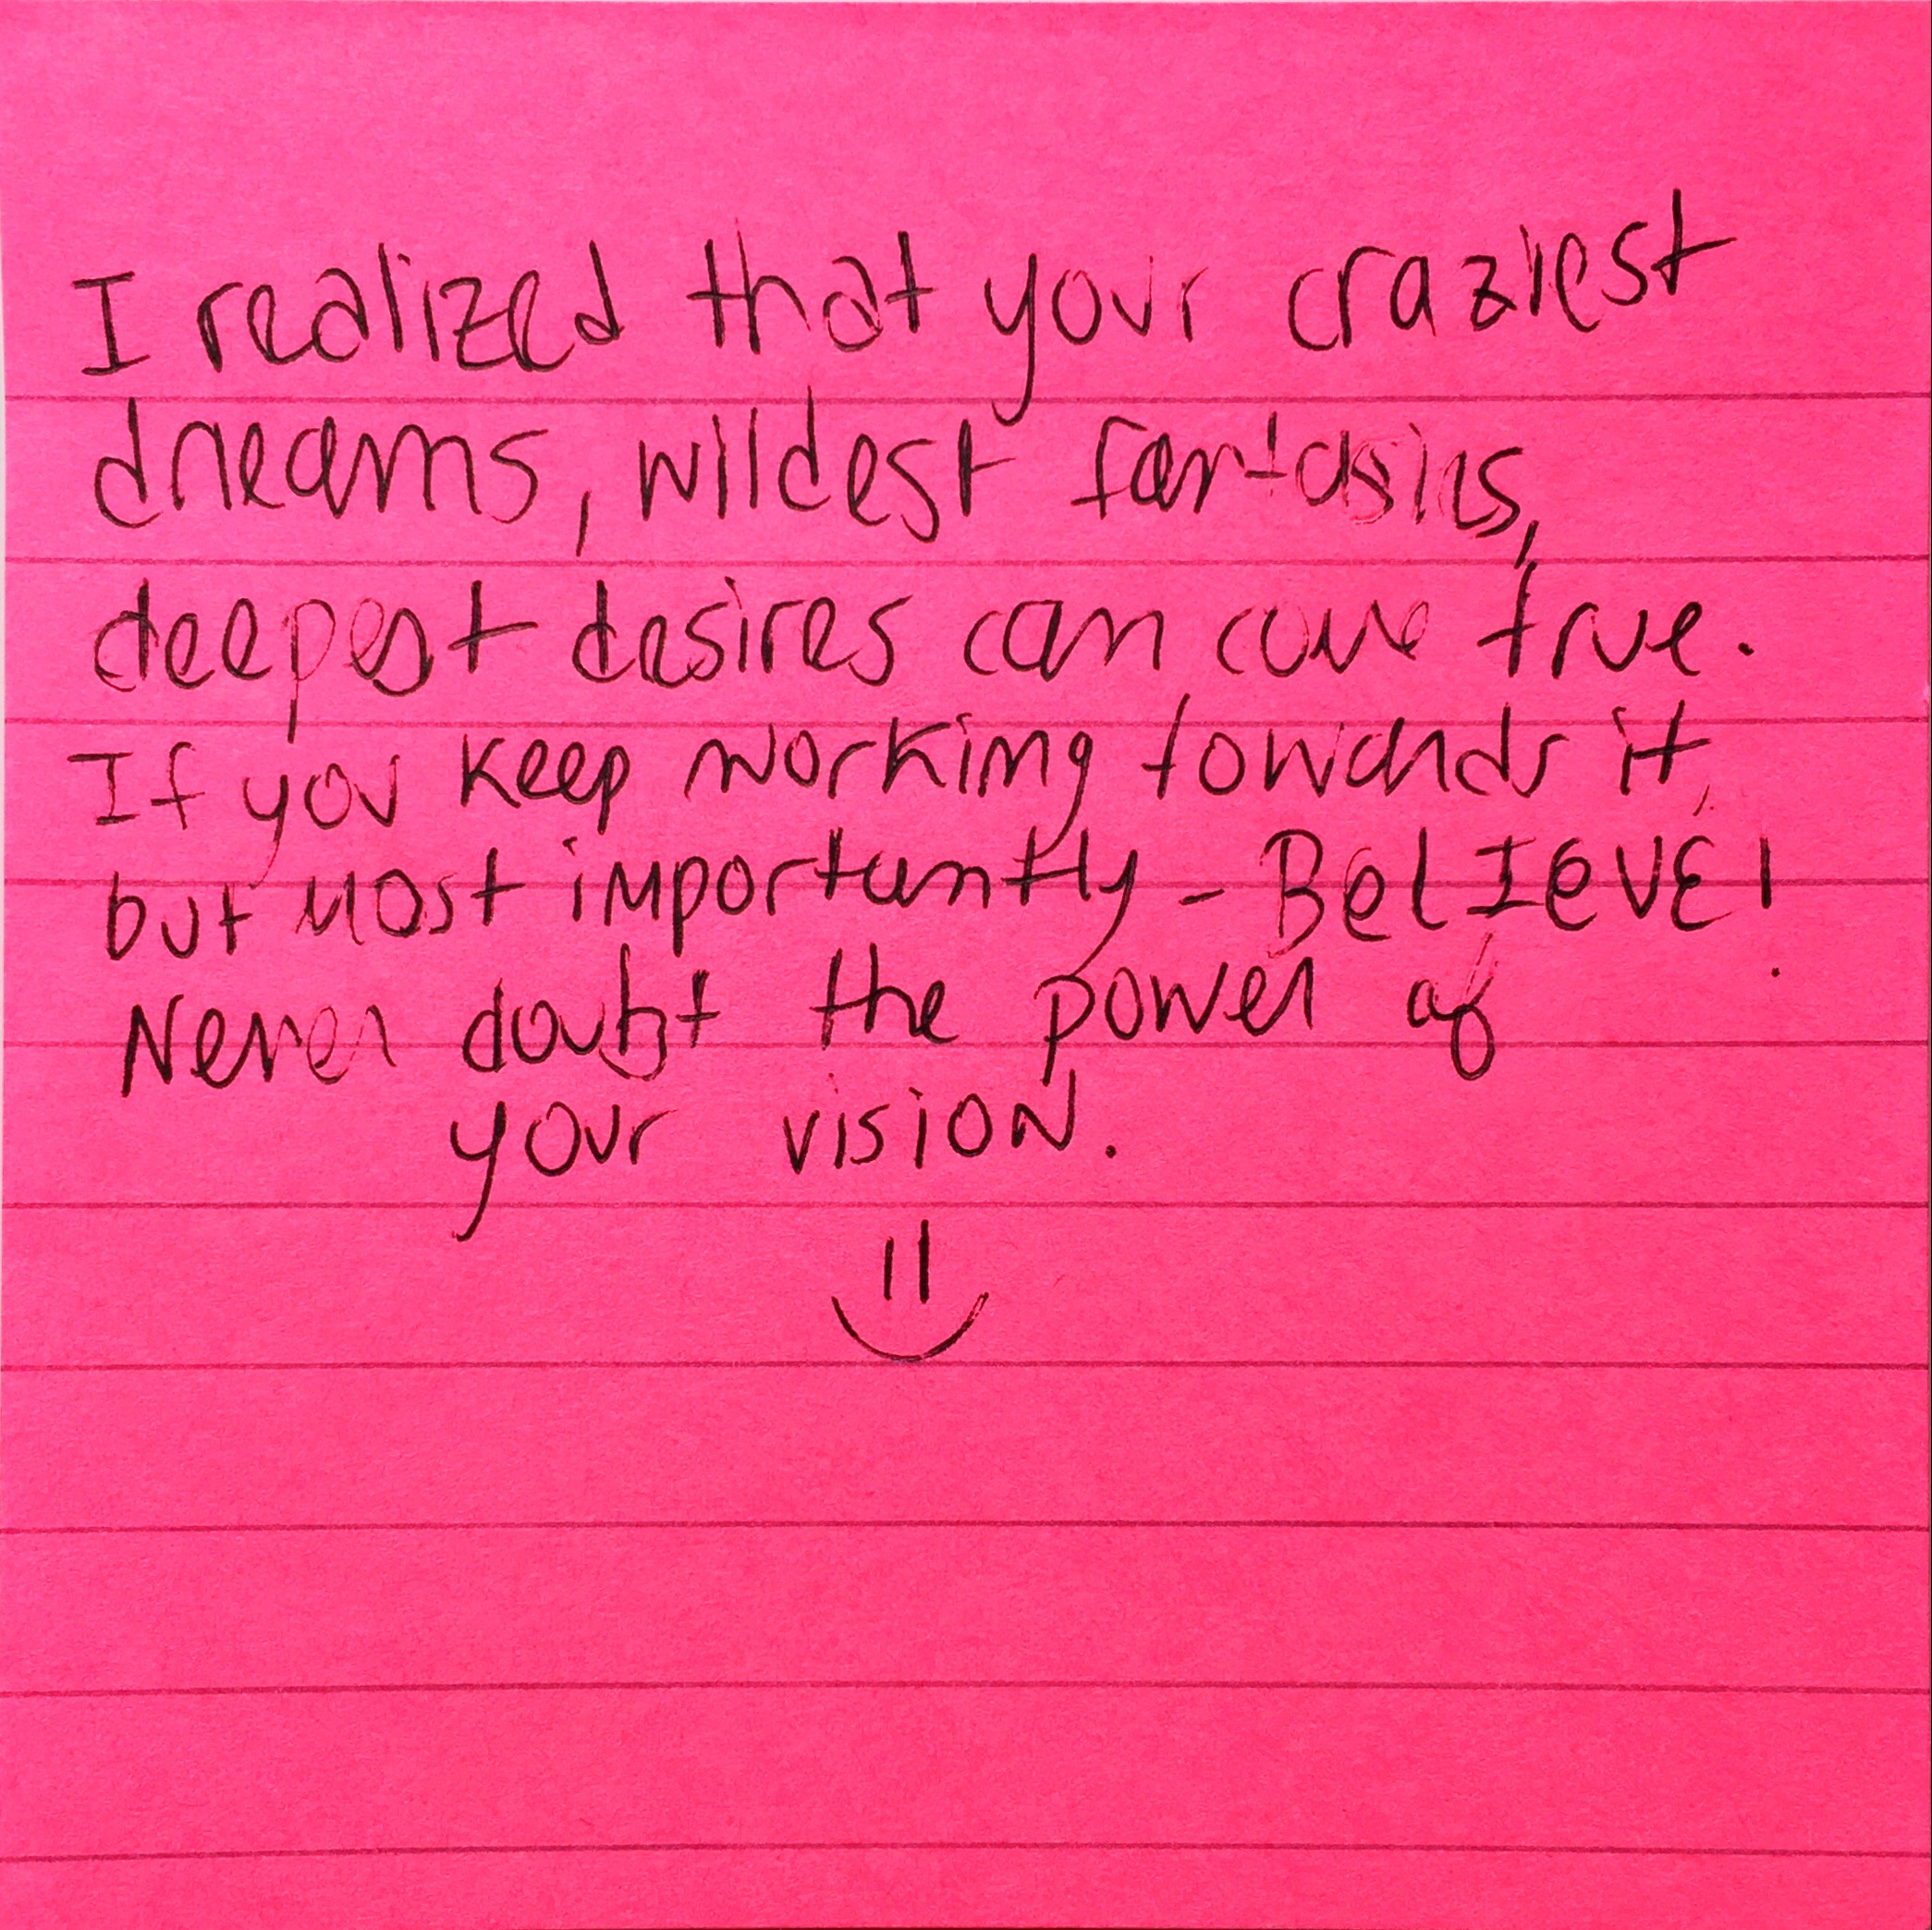 I realized that your craziest
dreams, wildest fantasies,
deepest desires can come true.
If you keep working towards it,
but most importantly - BelIeVE!
Never doubt the power of
your vision.